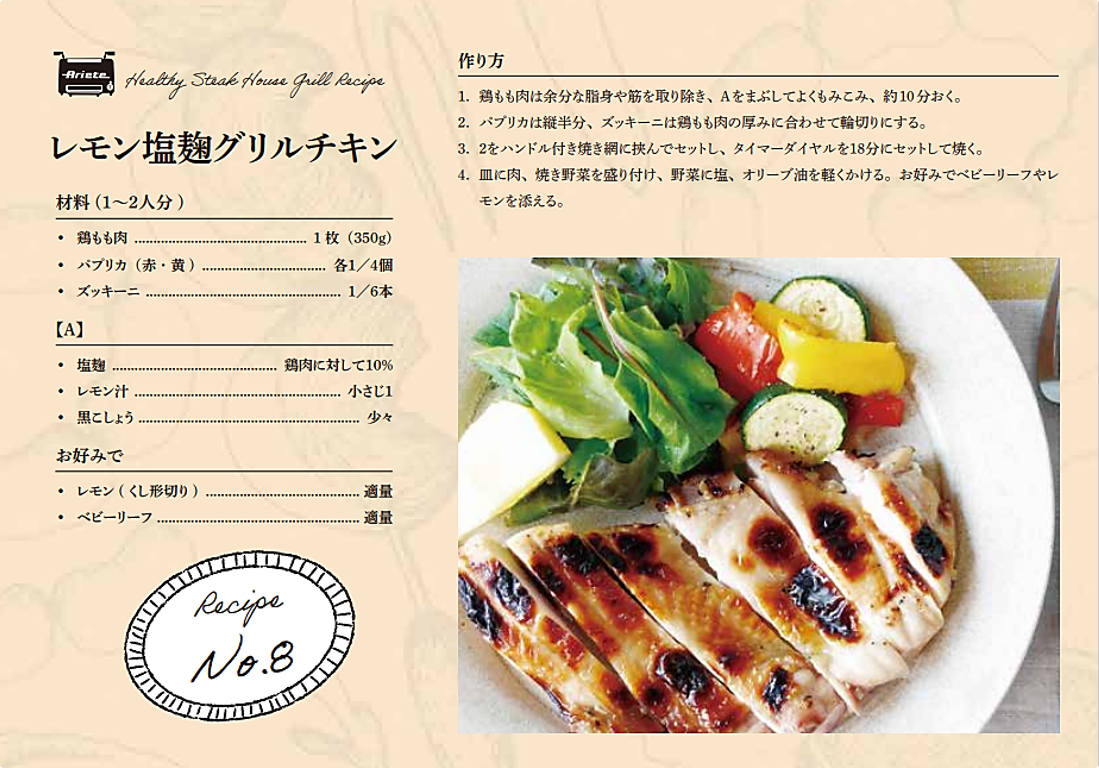 Ariete
Healthy Steak House Grill Recipe
レモン塩麹グリルチキン
材料 (1〜2人分 )
• 鶏もも肉 ................................................ 1 枚（350g）
• パプリカ（赤・黄 ） ................................. 各1／4個
• ズッキーニ .................................................... 1／6本
【A】
• 塩麹 ............................................ 鶏肉に対して10%
• レモン汁 ........................................................ 小さじ1
• 黒こしょう ........................................................... 少々
お好みで
• レモン ( くし形切り ) ......................................... 適量
• ベビーリーフ ...................................................... 適量
Recipe
No.8
作り方
1. 鶏もも肉は余分な脂身や筋を取り除き、Aをまぶしてよくもみこみ、約10分おく。
2. パプリカは縦半分、ズッキーニは鶏もも肉の厚みに合わせて輪切りにする。
3. 2をハンドル付き焼き網に挟んでセットし、タイマーダイヤルを18分にセットして焼く。
4. 皿に肉、焼き野菜を盛り付け、野菜に塩、オリーブ油を軽くかける。お好みでベビーリーフやレ
モンを添える。